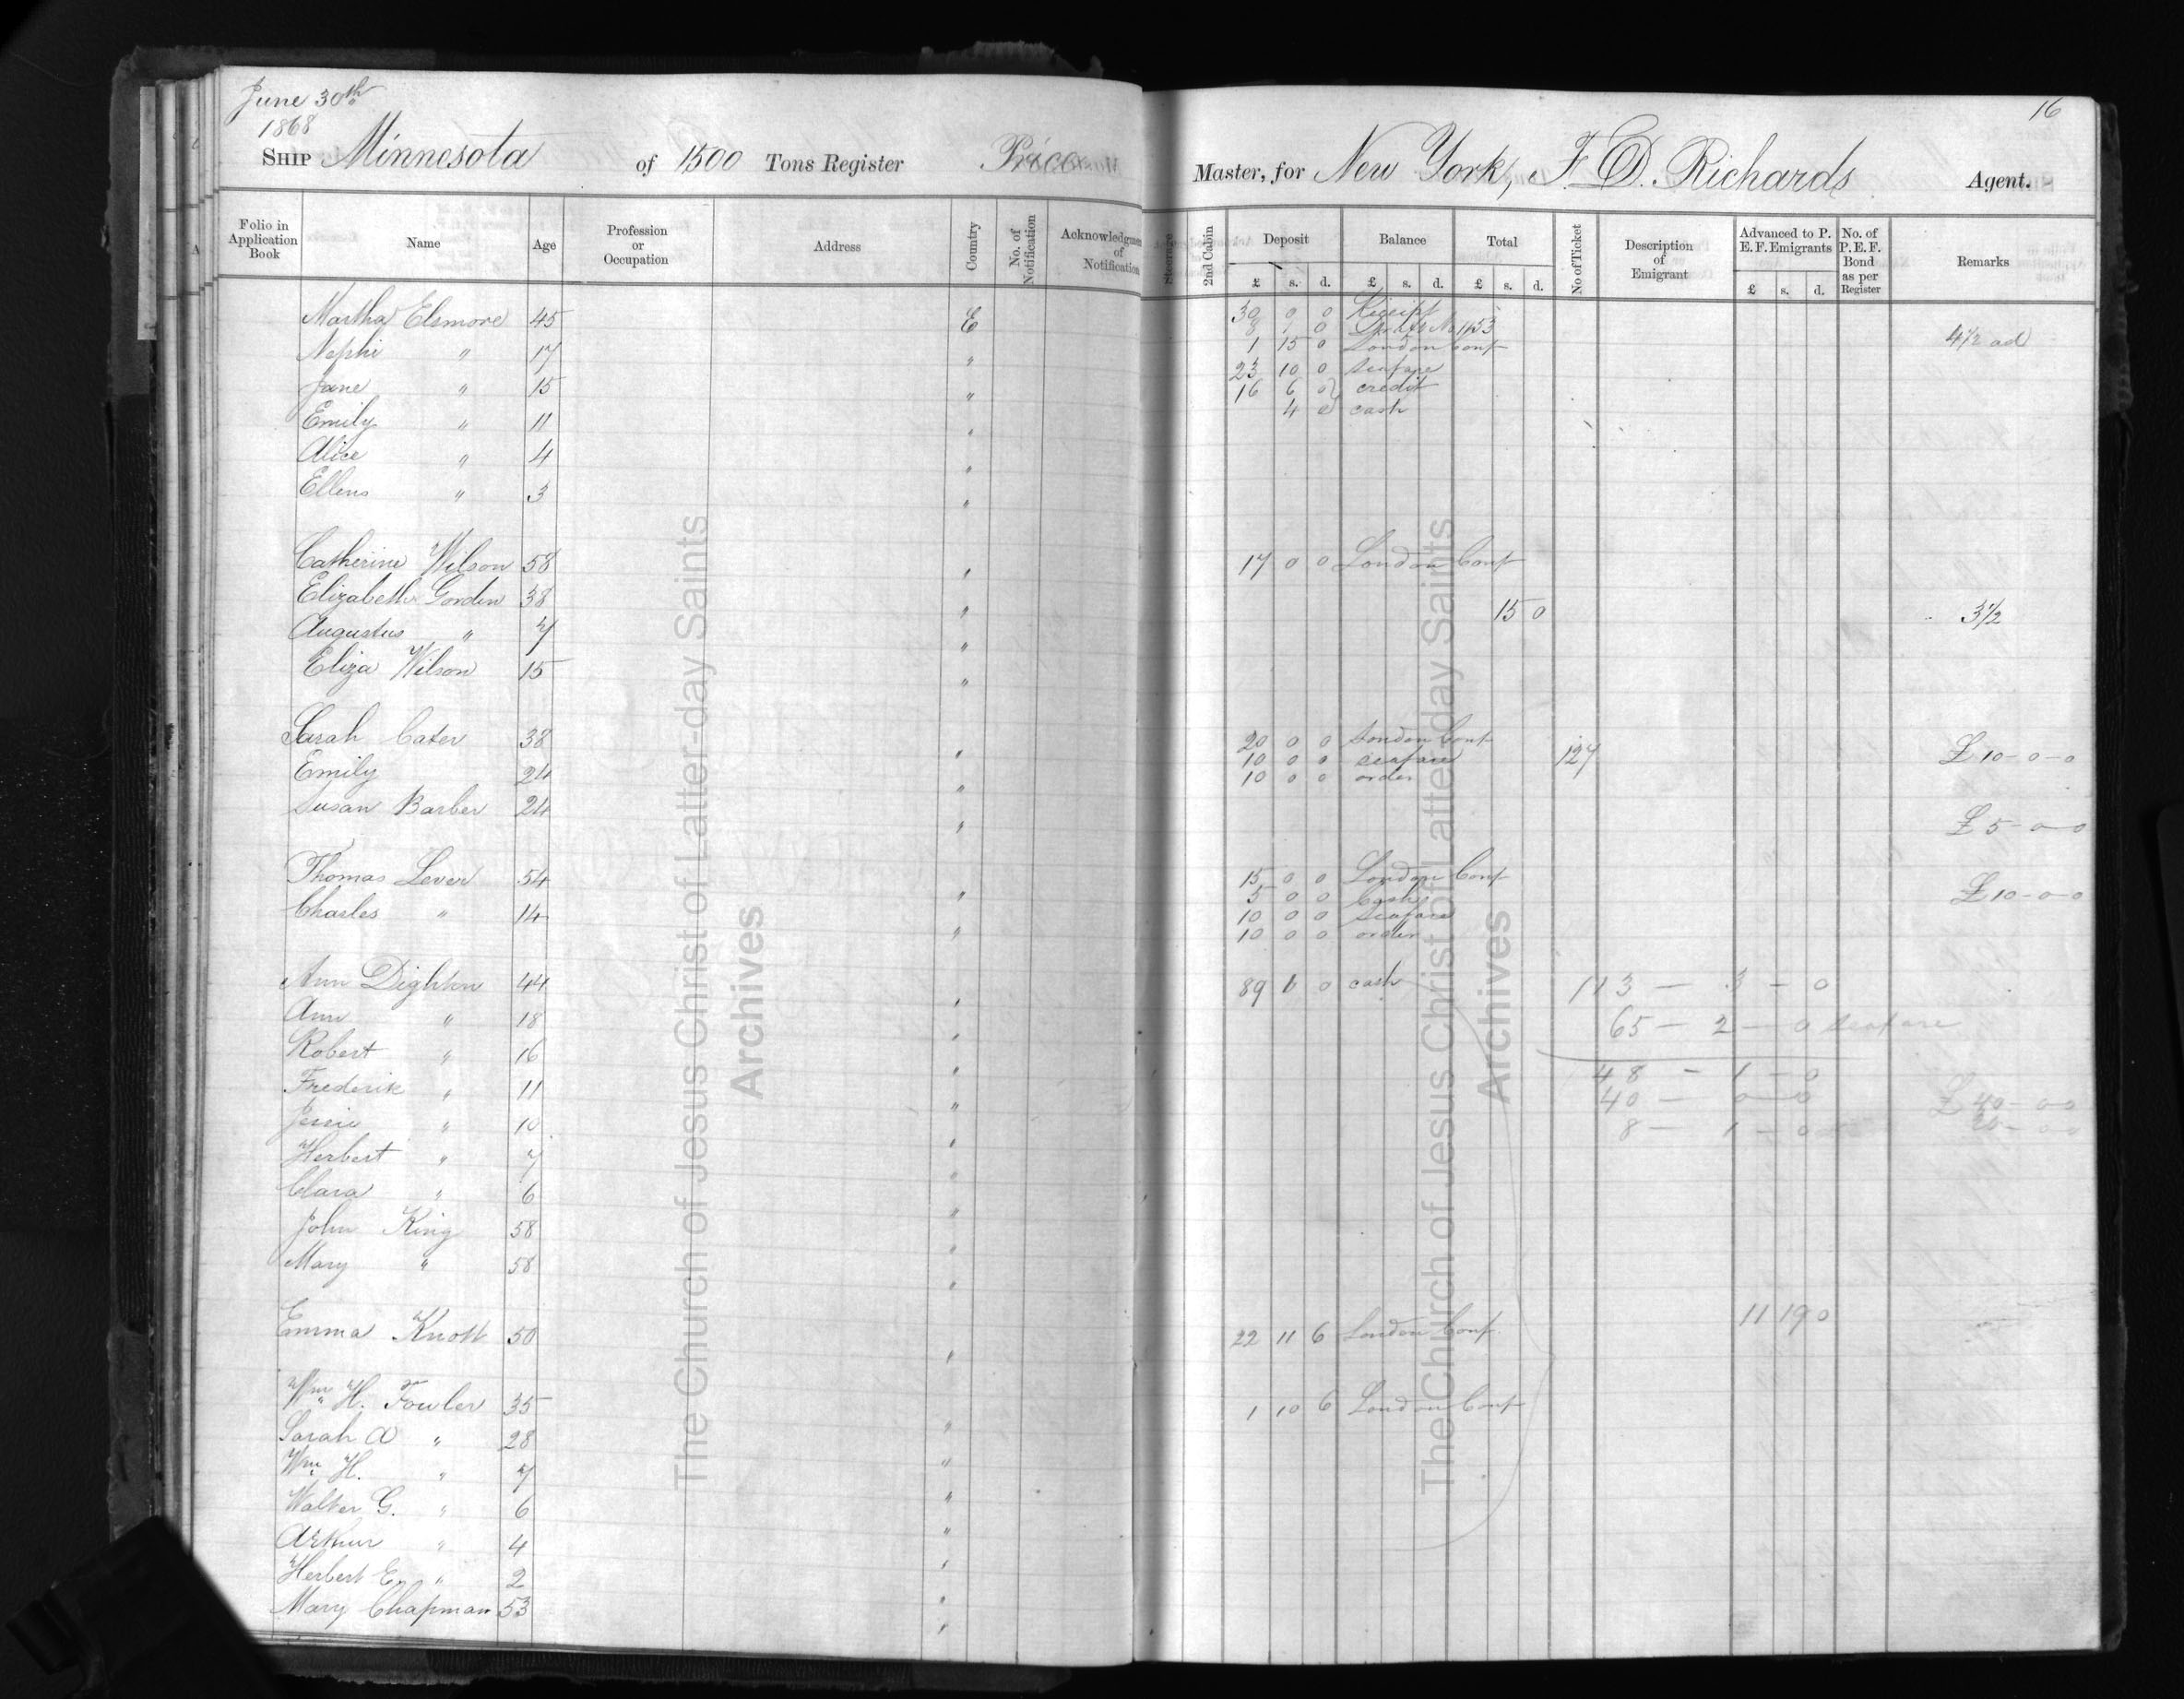 June 30th
1868
SHIP Minnesota of 1500 Tons Register Price Master, for New York, F. D. Richards Agent.
16
Folio in Application Book Name Age Profession or Occupation Address Country No. of Notification Acknowledgment of Notification Steerage 2nd Cabin Deposit Balance Total No of Ticket Description of Emigrant Advanced to P. E. F. Emigrants No. of P. E. F. Bond as per Register Remarks
£ s. d. £ s. d. £ s. d. £ s. d.
Martha Elsmore 45 E 30 0 0 Receipt
8 1 0 No 1153
Nephi " 17 " 1 15 0 London Conf 4 1/2 ad
23 10 0 seafare
Jane " 15 " 16 6 0 credit
4 0 cash
Emily " 11 "
Alice " 4 "
Ellens " 3 "
Catherine Wilson 58 " 17 0 0 London Conf
Elizabeth Gorden 38 " 15 0 3 1/2
Augustus " 7 "
Eliza Wilson 15 "
Sarah Cater 38 " 20 0 0 London Conf
10 0 0 seafare 127 £ 10-0-0
Emily 24 " 10 0 0 order
Susan Barber 24 " £ 5-0-0
Thomas Lever 54 " 15 0 0 London Conf
5 0 0 Cash £ 10-0-0
Charles " 14 " 10 0 0 seafare
10 0 0 order
Ann Dighton 44 " 89 1 0 cash 113 - 3 - 0
Ann " 18 " 65 - 2 - 0 seafare
Robert " 16 " 48 - 1 - 0
Frederik " 11 " 40 - 0 - 0 £ 40-0-0
Jessie " 10 " 8 - 1 - 0 20-0-0
Herbert " 7 "
Clara " 6 "
John King 58 "
Mary " 58 "
Emma Knott 50 " 22 11 6 London Conf 11 19 0
Wm H. Fowler 35 " 1 10 6 London Conf
Sarah A " 28 "
Wm H. " 7 "
Walter G. " 6 "
Arthur " 4 "
Herbert E. " 2 "
Mary Chapman 53 "
The Church of Jesus Christ of Latter-day Saints
Archives
The Church of Jesus Christ of Latter-day Saints
Archives